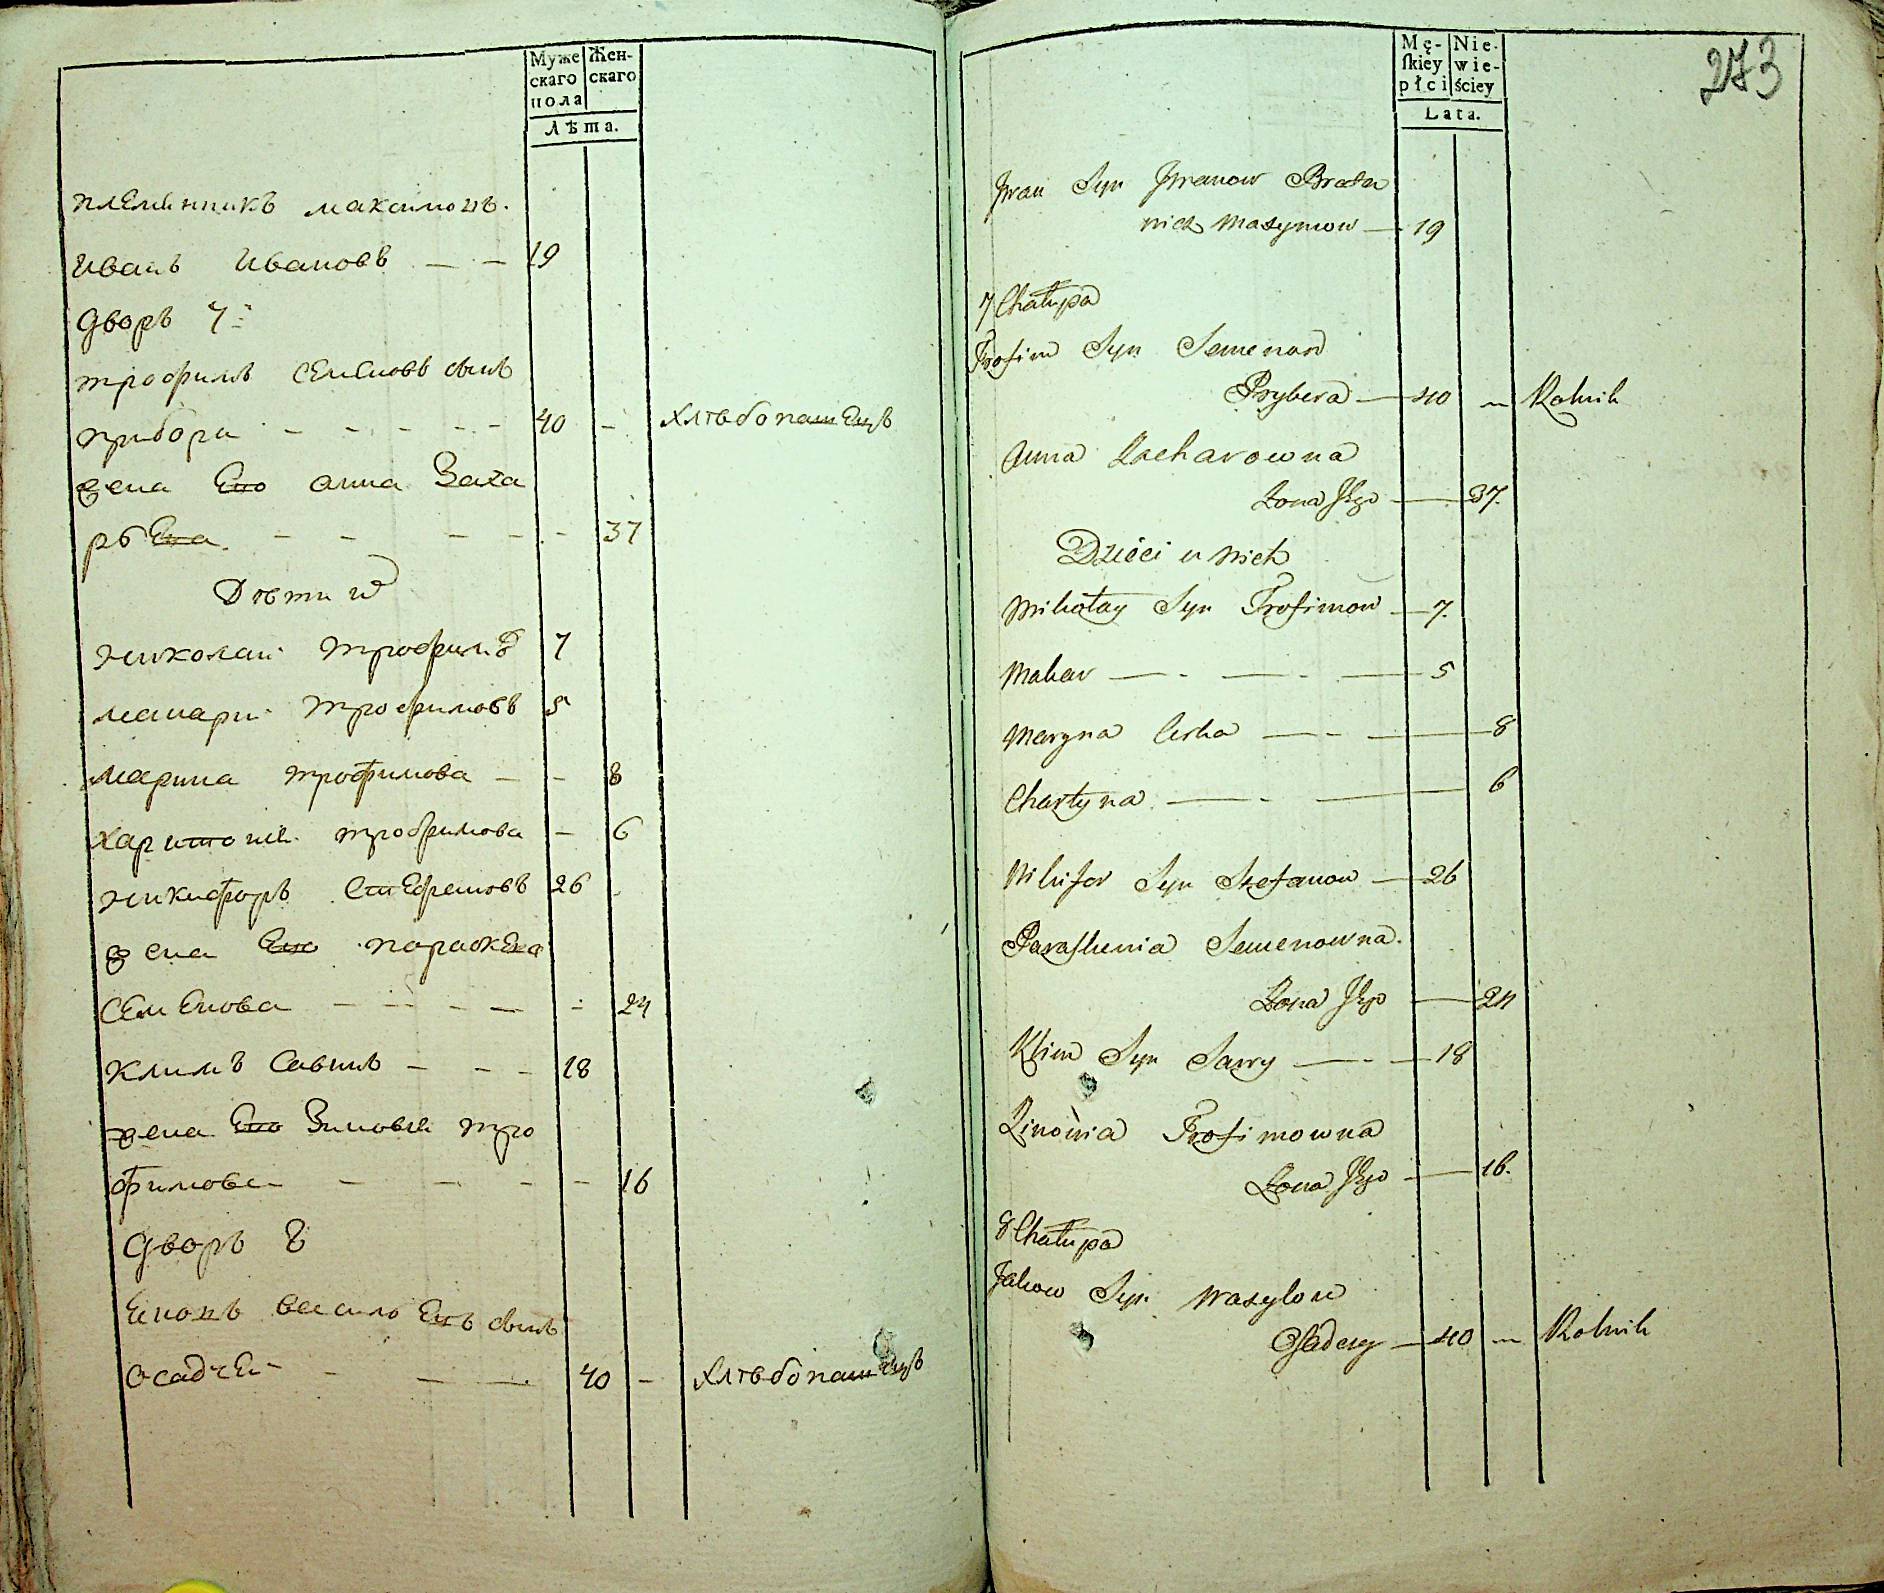 Муже
скаго
пола
Жен-
скаго
Лѣта.
племенникъ максимовъ.
Иванъ Ивановъ — — 19
Дворъ 7й
трофимъ семеновъ сынъ
прибора - - - - - 40 - хлѣбопашецъ
жена Его анна Заха
рьЕва - - - - - 37
Дѣти их
николай трофимов 7
макари трофимовъ 5
марина трофимова — - 8
харитони трофимова — 6
никифоръ стЕфановъ 26
жена Его параскЕва
сЕмЕнова - - - - - 24
климъ Савинъ - - - 18
жена Его Зиновья тро
фимова - - - - - 16
Дворъ 8
василЕвъ сынъ
осадчей - — — 40 - хлѣбопашецъ
Mę-
skiey
płci
Nie-
wie-
ściey
Lata.
273
Iwan Syn Iwanow Brata
nick Maxymow — 19
7 Chałupa
Trofim Syn Semenow
Prybora — 40 — Rolnik
Anna Zacharowna
Zona Jego — 37.
Dzieci u nich
Mikołay Syn Trofimow — 7.
Makar — - — - — 5
Maryna Corka — - — 8
Charytyna — - — 6
Nikifor Syn Stefanow — 26
Paraskewia Semenowna.
Zona Jego — 24
Klim Syn Sawy — - — 18
Zinowia Trofimowna
Zona Jego — 16.
8 Chałupa
Jakow Syn Wasylow
Osadczy — 40 — Rolnik